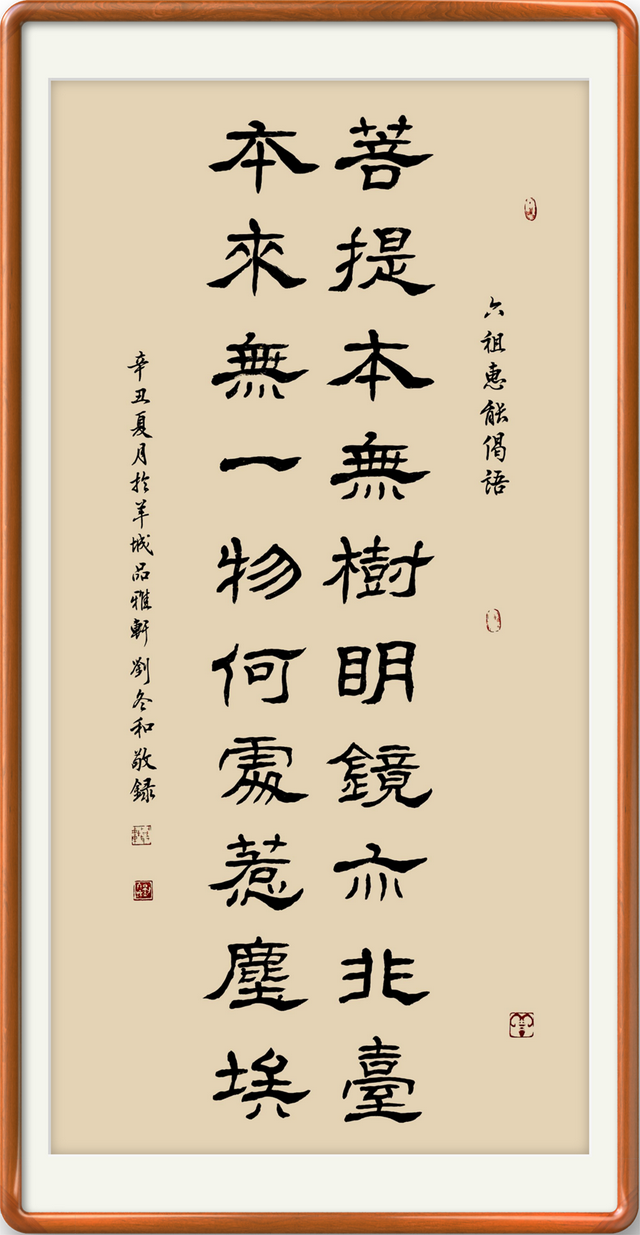 六祖惠能偈語
菩提本無樹明鏡亦非臺
本來無一物何處惹塵埃
辛丑夏月於羊城品雅軒劉冬和敬録